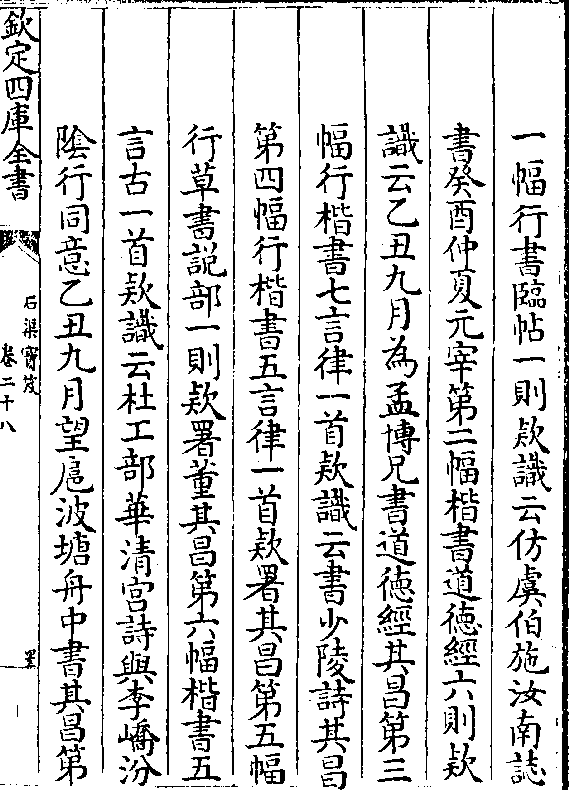 一幅行書臨帖一則欵識云仿虞伯施汝南誌
書癸酉仲夏元宰第二幅楷書道德經六則欵
識云乙丑九月為孟博兄書道德經其昌第三
幅行楷書七言律一首欵識云書少陵詩其昌
第四幅行楷書五言律一首欵署其昌第五幅
行草書説部一則欵署董其昌第六幅楷書五
言古一首欵識云杜工部華清宫詩與李嶠汾
隂行同意乙丑九月望扈波塘舟中書其昌第
欽定四庫全書
石渠寶笈
卷二十八